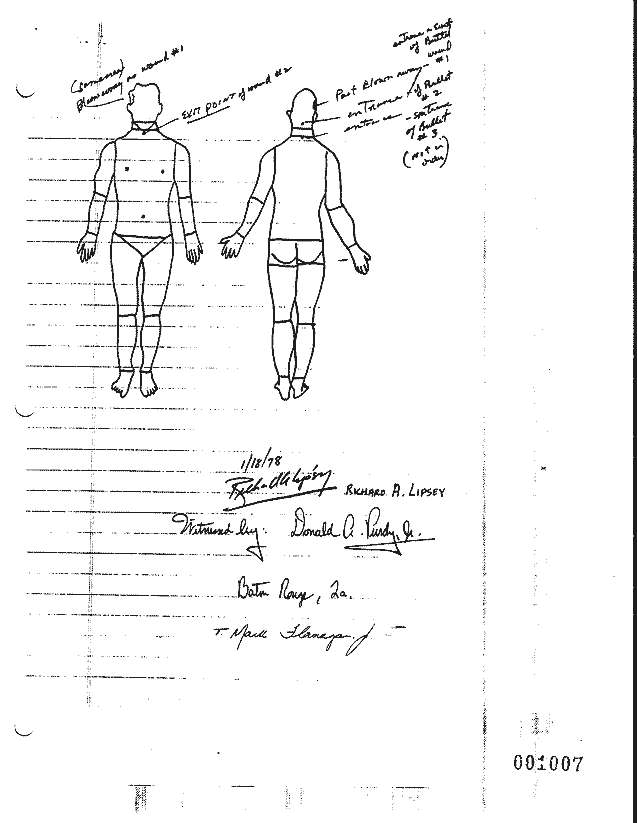 (same area)
Blown away as wound #1
EXIT POINT of wound #2
entrance
of Bullet
wound
#1
Part Blown away
entrance of Bullet
#2
entrance
of Bullet
#3
(not in
order)
1/18/78
Richard A Lipsey
RICHARD A. LIPSEY
Witnessed by: Donald A. Purdy, Jr.
Baton Rouge, La.
T. Mark Flanagan, Jr
001007